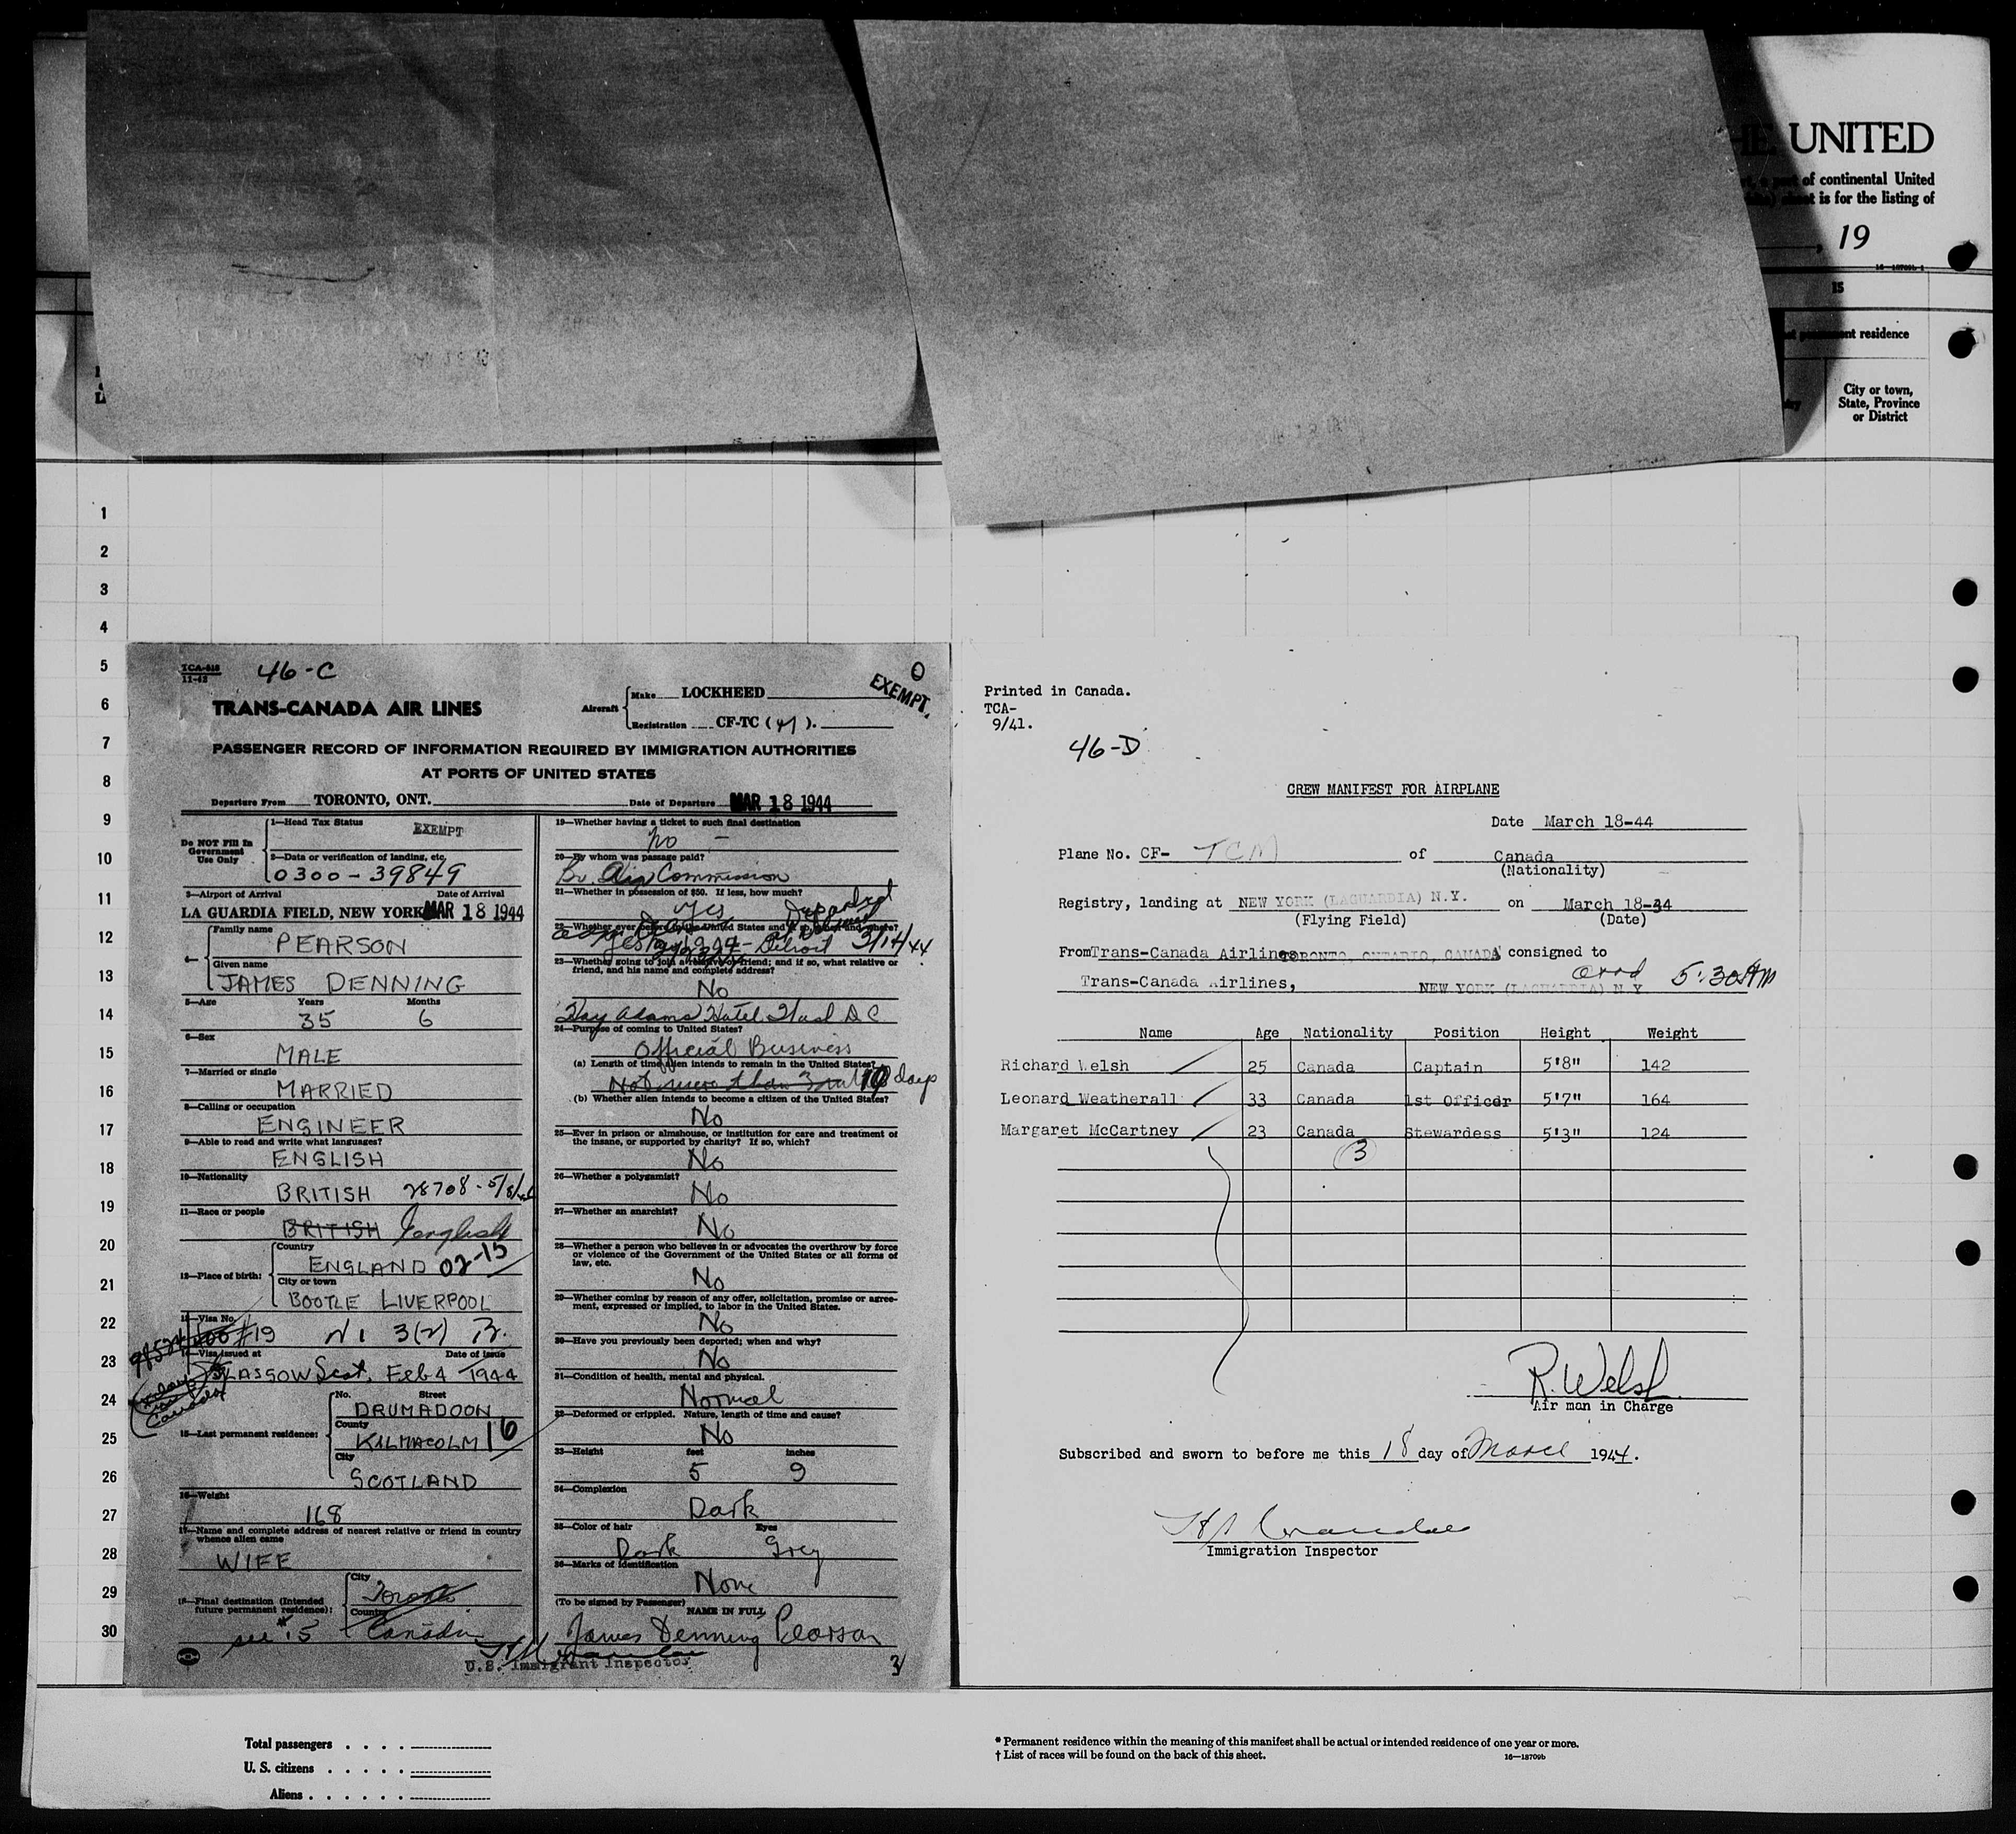 HE UNITED
of continental United
sheet is for the listing of
, 19
15
residence
City or town,
State, Province
or District
1
2
3
4
5
6
7
8
9
10
11
12
13
14
15
16
17
18
19
20
21
22
23
24
25
26
27
28
29
30
TCA-
11-43
46-C
O
EXEMPT.
TRANS-CANADA AIR LINES
Aircraft
Make LOCKHEED
Registration CF-TC (41).
PASSENGER RECORD OF INFORMATION REQUIRED BY IMMIGRATION AUTHORITIES
AT PORTS OF UNITED STATES
Departure From TORONTO, ONT. Date of Departure MAR 18 1944
Do NOT Fill In
Government
Use Only
1—Head Tax Status
EXEMPT
2—Data or verification of landing, etc.
0300-39849
3—Airport of Arrival Date of Arrival
LA GUARDIA FIELD, NEW YORK MAR 18 1944
4—
Family name
PEARSON
Given name
JAMES DENNING
5—Age Years Months
35 6
6—Sex
MALE
7—Married or single
MARRIED
8—Calling or occupation
ENGINEER
9—Able to read and write what languages?
ENGLISH
10—Nationality
BRITISH 28708-5/8/
11—Race or people
BRITISH English
12—Place of birth:
Country
ENGLAND 02-15
City or town
BOOTLE LIVERPOOL
13—Visa No.
#19 3(2)
14—Visa issued at Date of Issue
GLASGOW Scot. Feb 4 1944
Canada
15—Last permanent residence:
No. Street
DRUMADOON
County
KILMACOLM 16
City
SCOTLAND
16—Weight
168
17—Name and complete address of nearest relative or friend in country
whence alien came
WIFE
18—Final destination (Intended
future permanent residence):
City
Toronto
Country
Canada
see #15
19—Whether having a ticket to such final destination
No -
20—By whom was passage paid?
Br. Air Commission
21—Whether in possession of $50. If less, how much?
Yes
Departed
22—Whether ever before in the United States and if so, when and where?
Yes 1944 - Detroit 3/14/44
23—Whether going to join a relative or friend; and if so, what relative or
friend, and his name and complete address?
No
Hay Adams Hotel Wash D.C.
24—Purpose of coming to United States?
Official Business
(a) Length of time alien intends to remain in the United States?
Not more than 10 days
(b) Whether alien intends to become a citizen of the United States?
No
25—Ever in prison or almshouse, or institution for care and treatment of
the insane, or supported by charity? If so, which?
No
26—Whether a polygamist?
No
27—Whether an anarchist?
No
28—Whether a person who believes in or advocates the overthrow by force
or violence of the Government of the United States or all forms of
law, etc.
No
29—Whether coming by reason of any offer, solicitation, promise or agree-
ment, expressed or implied, to labor in the United States.
No
30—Have you previously been deported; when and why?
No
31—Condition of health, mental and physical.
Normal
32—Deformed or crippled. Nature, length of time and cause?
No
33—Height feet inches
5 9
34—Complexion
Dark
35—Color of hair Eyes
Dark Grey
36—Marks of identification
None
(To be signed by Passenger)
NAME IN FULL
James Denning Pearson
U.S. Immigrant Inspector
3
Printed in Canada.
TCA-
9/41.
46-D
CREW MANIFEST FOR AIRPLANE
Date March 18-44
Plane No. CF- TCM of Canada
(Nationality)
Registry, landing at NEW YORK (LAGUARDIA) N.Y. on March 18-44
(Flying Field) (Date)
From Trans-Canada Airlines TORONTO, ONTARIO, CANADA consigned to
Trans-Canada Airlines, NEW YORK (LAGUARDIA) N.Y. arrd 5:30 PM
Name Age Nationality Position Height Weight
Richard Welsh 25 Canada Captain 5'8" 142
Leonard Weatherall 33 Canada 1st Officer 5'7" 164
Margaret McCartney 23 Canada Stewardess 5'3" 124
3
R. Welsh
Air man in Charge
Subscribed and sworn to before me this 18 day of March 1944.
Immigration Inspector
Total passengers . . . .
U. S. citizens . . . . .
Aliens . . . . . .
* Permanent residence within the meaning of this manifest shall be actual or intended residence of one year or more.
† List of races will be found on the back of this sheet. 16—18709b